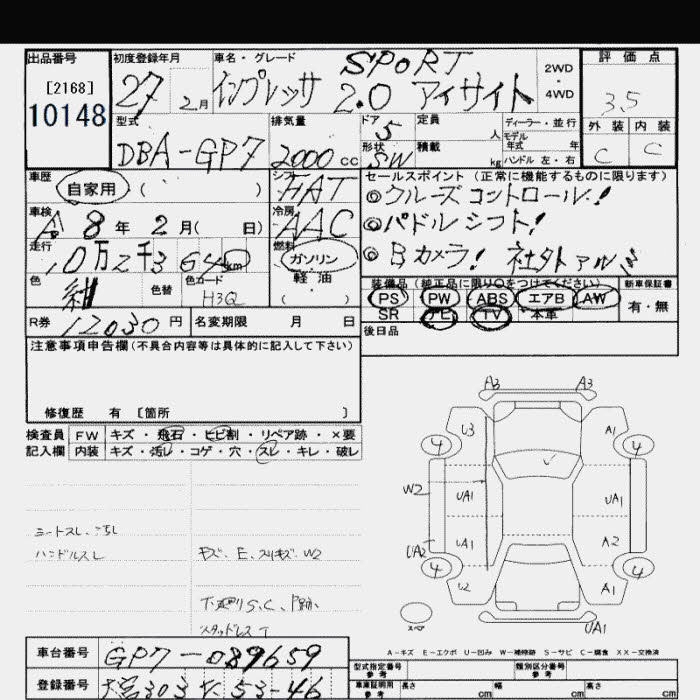 出品番号 初度登録年月 車名・グレード 評価点
[2168] 27 2月 インプレッサ SPORT 2WD
10148 2.0 アイサイト 4WD 3.5
外装 内装
型式 排気量 ドア 5 定員 人 ディーラー・並行
DBA-GP7 2000cc 形状 SW 積載 kg モデル年式 年
ハンドル 左・右 C C
車歴 自家用 ( ) シフト HAT セールスポイント (正常に機能するものに限ります)
◎クルーズコントロール!
車検 8年 2月( 日) 冷房 AAC ◎パドルシフト!
走行 10万2千3 km 燃料 ガソリン 軽油 ( ) ◎Bカメラ! 社外アルミ
色 紺 色替 色コード H3Q
装備品 (純正品に限り○をつけてください) 新車保証書
PS PW ABS エアB AW 有・無
SR ナビ TV 本革
R券 12030円 名変期限 月 日 後日品
注意事項申告欄(不具合内容等は具体的に記入して下さい)
修復歴 有 [箇所 ]
検査員 FW キズ・飛石・ヒビ割・リペア跡・×要
記入欄 内装 キズ・汚レ・コゲ・穴・スレ・キレ・破レ
シートスレ、
ハンドルスレ キズ、E、スリキズ、W2
下廻りS、C、
スタッドレスT
A3 A3
U3 A1
4 4
W2 UA1 UA1
UA2 UA1 A2
4 4
U2 A1
スペア UA1
A-キズ E-エクボ U-凹み W-補修跡 S-サビ C-腐食 XX-交換済
車台番号 GP7-089659
型式指定番号 参考 類別区分番号 参考
登録番号 大宮303 53-46
車庫証明用 参考 長さ cm 幅 cm 高さ cm